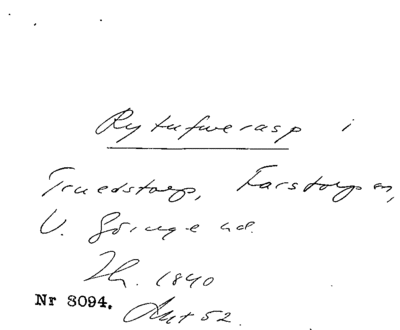 Rytufwerasp i
Truedstorp, Farstorps sn,
V. Göinge hd.
Th. 1840
Nr 8094. Ant 52.